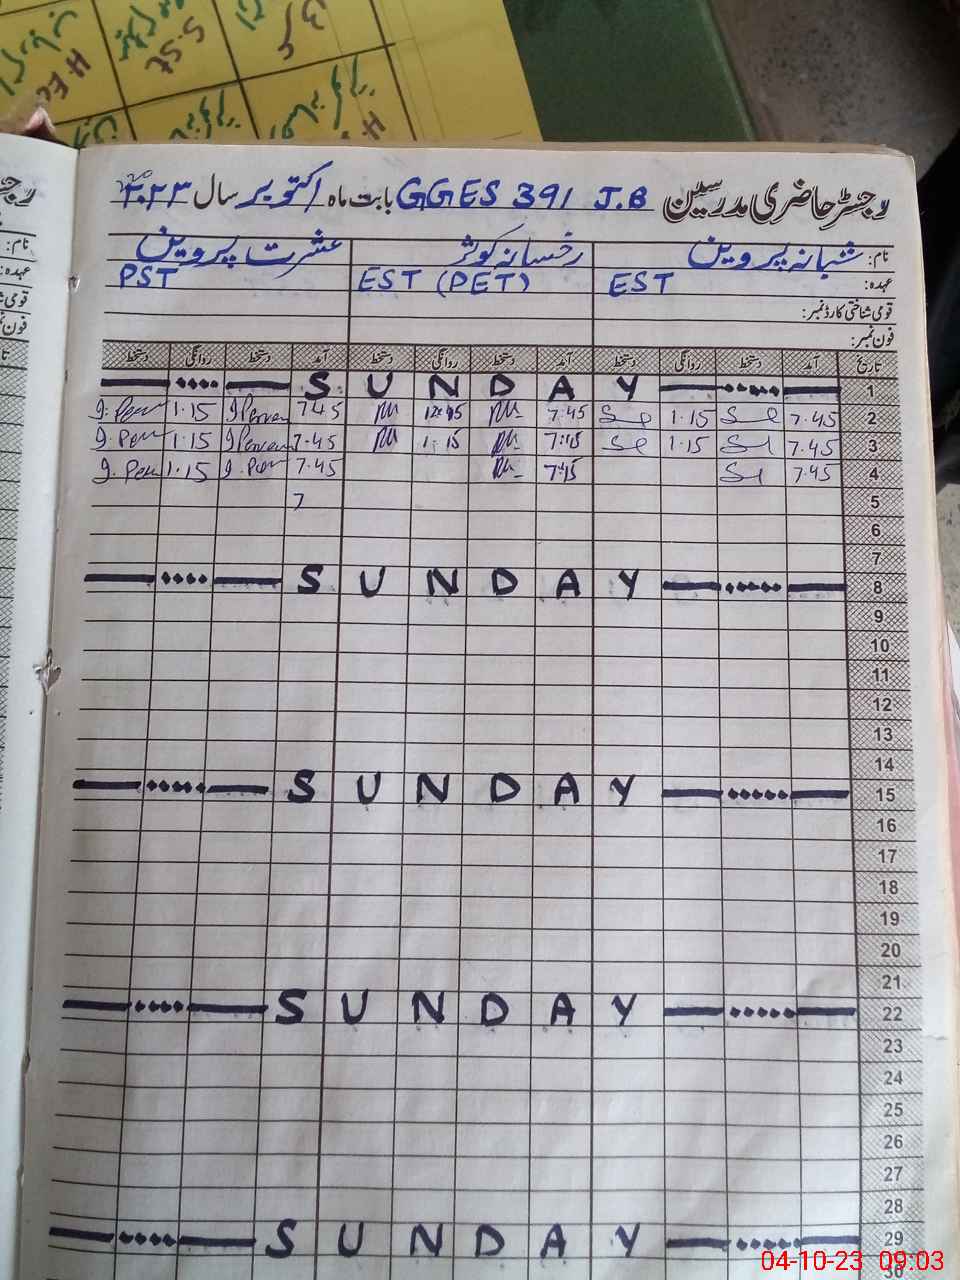 رجسٹر حاضری مدرسین GGES 391 J.B بابت ماہ اکتوبر سال ۲۰۲۳
نام: شبانہ پروین رخسانہ کوثر عشرت پروین
عہدہ: EST EST (PET) PST
قومی شناختی کارڈ نمبر:
فون نمبر:
تاریخ آمد دستخط روانگی دستخط آمد دستخط روانگی دستخط آمد دستخط روانگی دستخط
1 S U N D A Y
2 7.45 1.15 7.45 12.45 7.45 1.15
3 7.45 1.15 7:45 1:15 7.45 1.15
4 7.45 7:45 7.45 1.15
5 7
6
7
8 S U N D A Y
9
10
11
12
13
14
15 S U N D A Y
16
17
18
19
20
21
22 S U N D A Y
23
24
25
26
27
28
29 S U N D A Y
30
04-10-23 09:03